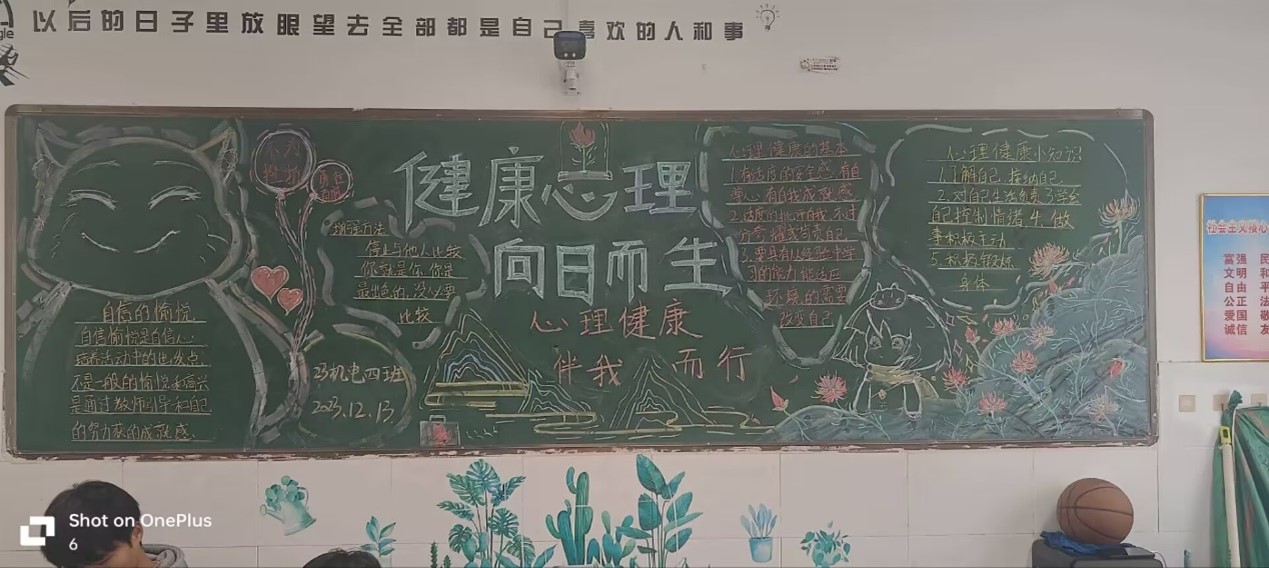 以后的日子里放眼望去全部都是自己喜欢的人和事
gle
健康心理
向日而生
心理健康
伴我 而行
自信的愉悦
自信愉悦是自信心
培养活动中的出发点
不是一般的愉悦和高兴
是通过教师引导和自己
的努力获的成就感
增强方法
停止与他人比较
你就是你,你是
最出色的,没必要
比较
23机电四班
2023.12.13
心理健康的基本
1.有适度的安全感,有自
尊心,有自我成就感
2.适度的批评自我,不过
分夸耀或苛责自己
环境的需要
改变自己
心理健康小知识
1.了解自己,接纳自己
2.对自己生活负责
学会
自控制情绪
做
事积极主动
5.积极锻炼
身体
社会主义核心
富强 民
文明 和
自由 平
公正 法
爱国 敬
诚信 友
Shot on OnePlus
6